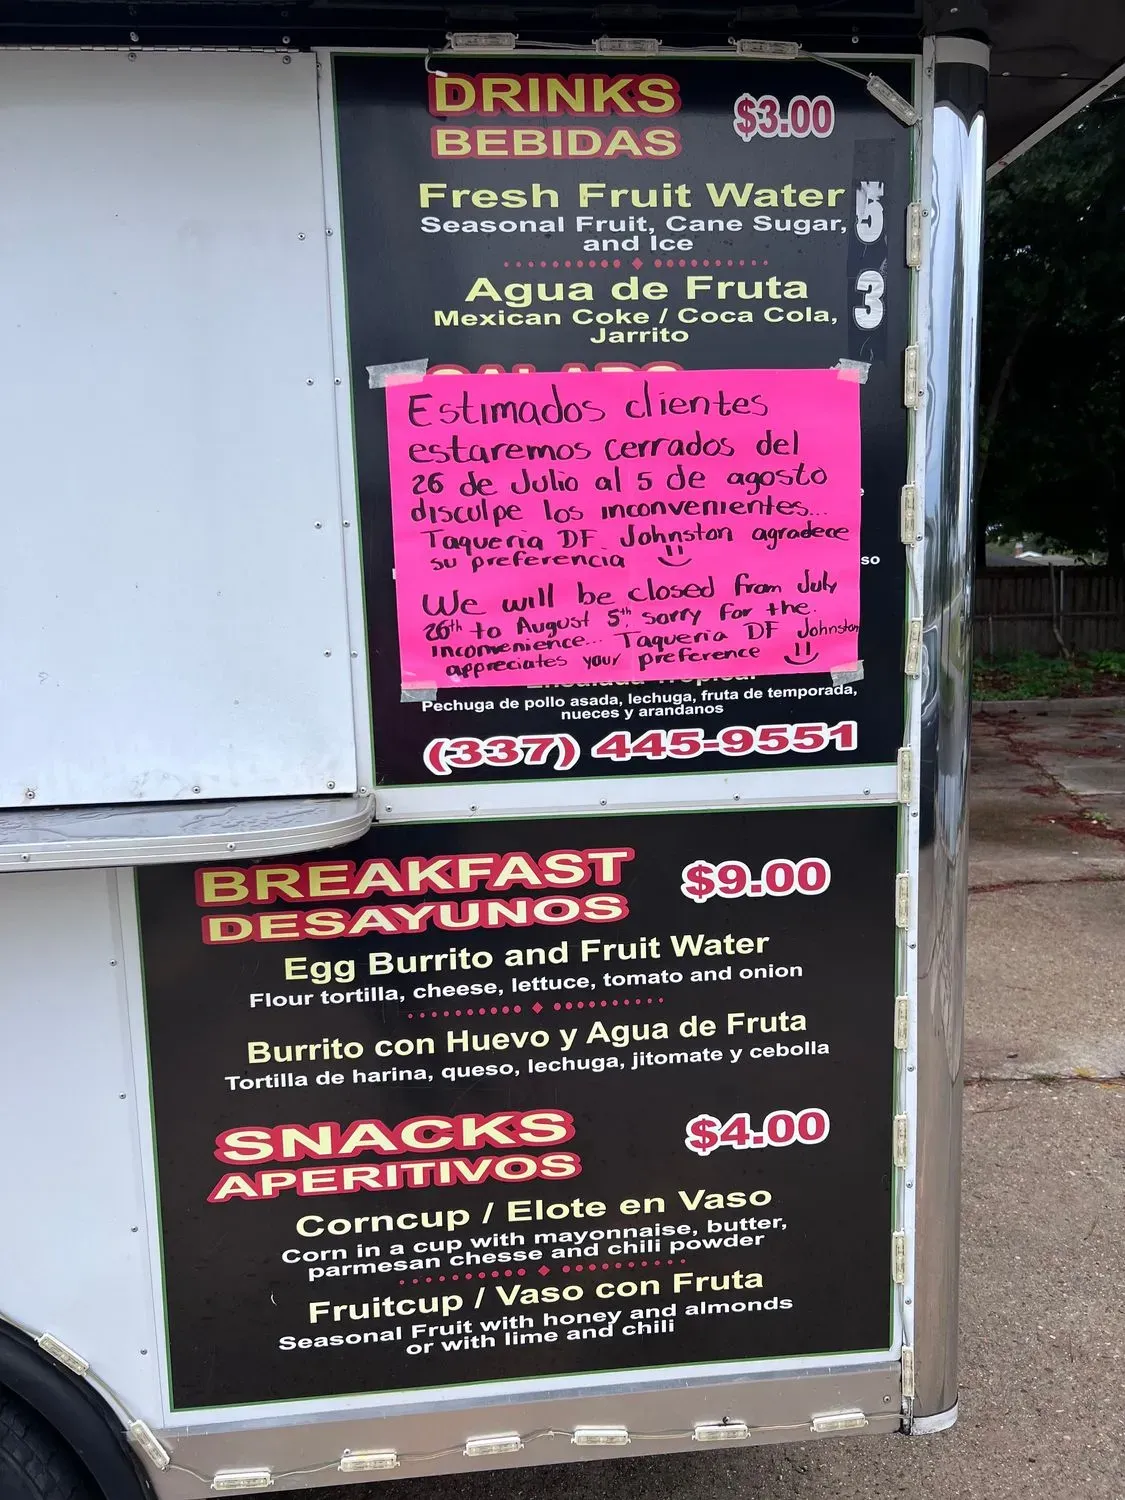 DRINKS
BEBIDAS
$3.00
Fresh Fruit Water
5
Seasonal Fruit, Cane Sugar,
and Ice
Agua de Fruta
3
Mexican Coke / Coca Cola,
Jarrito
Estimados clientes
estaremos cerrados del
26 de Julio al 5 de agosto
disculpe los inconvenientes...
Taqueria DF Johnston agradece
su preferencia
We will be closed from July
26th to August 5th, sorry for the
inconvenience... Taqueria DF Johnston
appreciates your preference
Pechuga de pollo asada, lechuga, fruta de temporada,
nueces y arandanos
(337) 445-9551
BREAKFAST
DESAYUNOS
$9.00
Egg Burrito and Fruit Water
Flour tortilla, cheese, lettuce, tomato and onion
Burrito con Huevo y Agua de Fruta
Tortilla de harina, queso, lechuga, jitomate y cebolla
SNACKS
APERITIVOS
$4.00
Corncup / Elote en Vaso
Corn in a cup with mayonnaise, butter,
parmesan chesse and chili powder
Fruitcup / Vaso con Fruta
Seasonal Fruit with honey and almonds
or with lime and chili